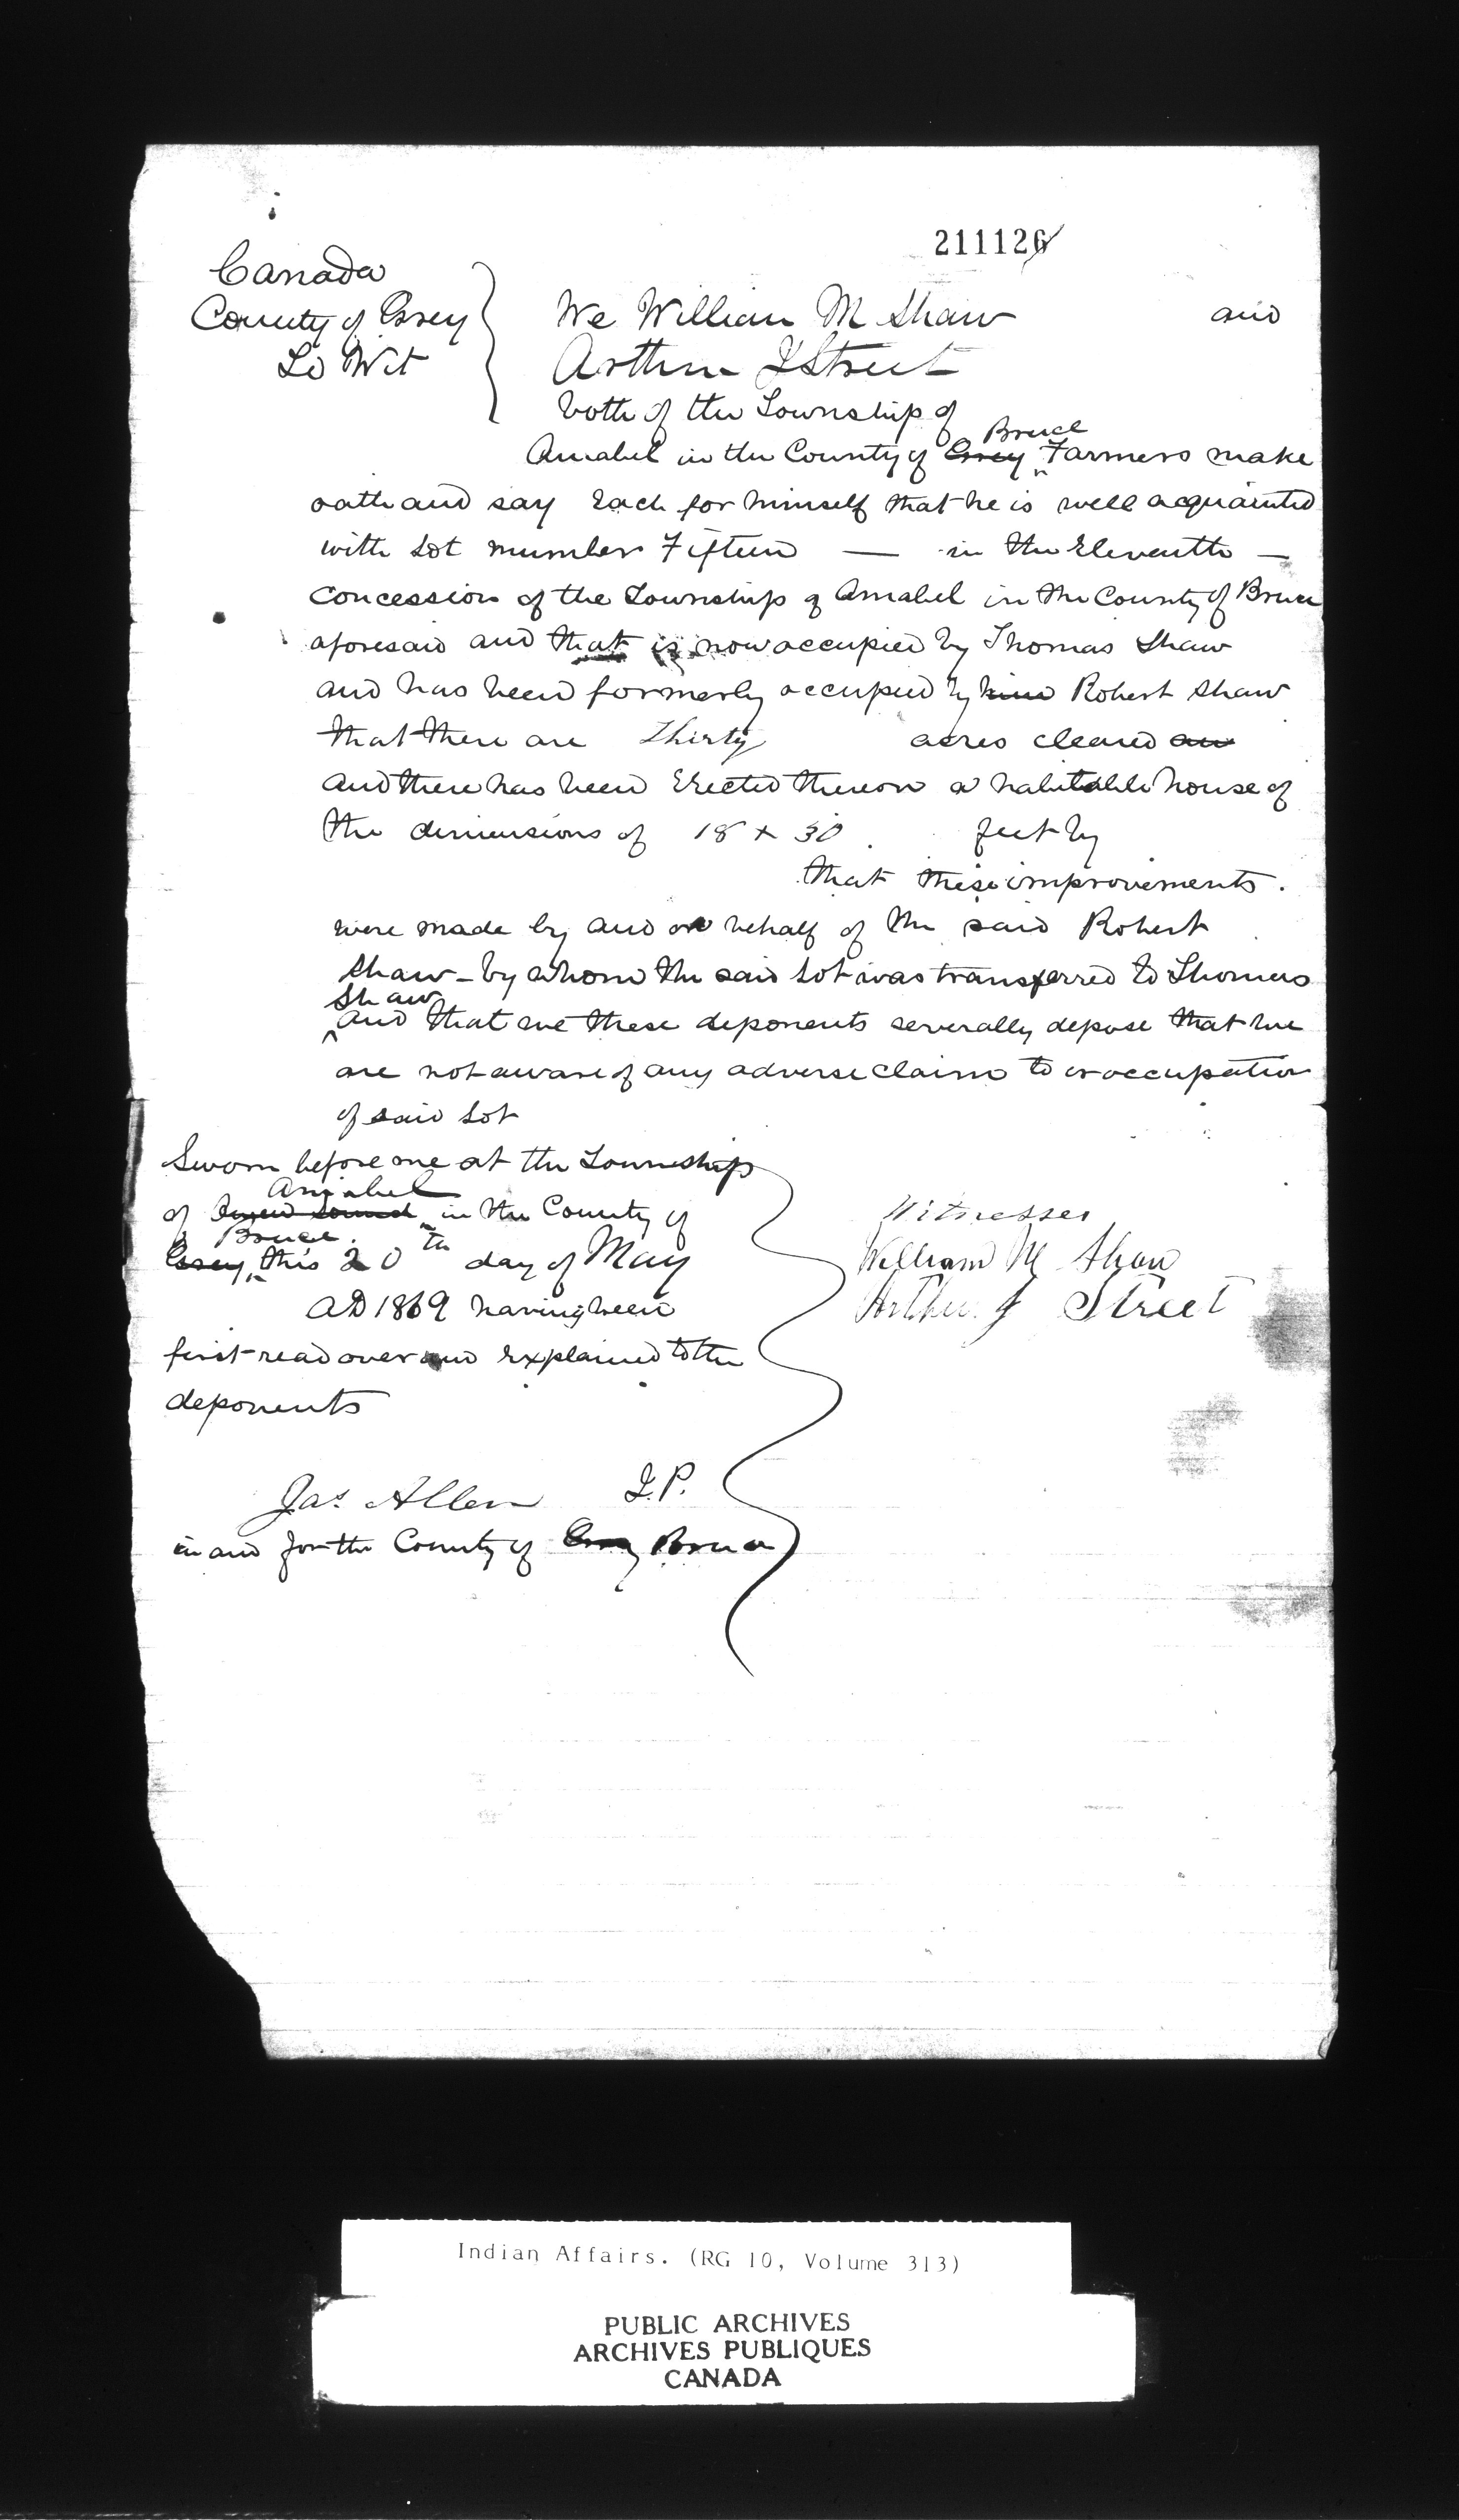 211126
Canada
County of Grey
To Wit
We William M Shaw and
Arthur J Street
both of the Township of
Bruce
Amabel in the County of Grey Farmers make
oath and say Each for himself that he is well acquainted
with Lot number Fifteen — in the Eleventh —
Concession of the Township of Amabel in the County of Bruce
aforesaid and that is now occupied by Thomas Shaw
and has been formerly occupied by him Robert Shaw
that there are Thirty acres cleared an
and there has been Erected thereon a habitable house of
the dimensions of 18 x 30 feet by
that these improvements.
were made by and on behalf of the said Robert
Shaw - by whom the said Lot was transferred to Thomas
Shaw
and that we these deponents severally depose that we
are not aware of any adverse claim to or occupation
of said Lot
Sworn before me at the Township
Amabel
of Owen Sound in the County of
Bruce.
Grey this 20th day of May
AD 1869 having been
first read over and explained to the
deponents
Witnesses
William M Shaw
Arthur J Street
Jas. Allen J.P.
in and for the County of Grey Bruce
Indian Affairs. (RG 10, Volume 313)
PUBLIC ARCHIVES
ARCHIVES PUBLIQUES
CANADA